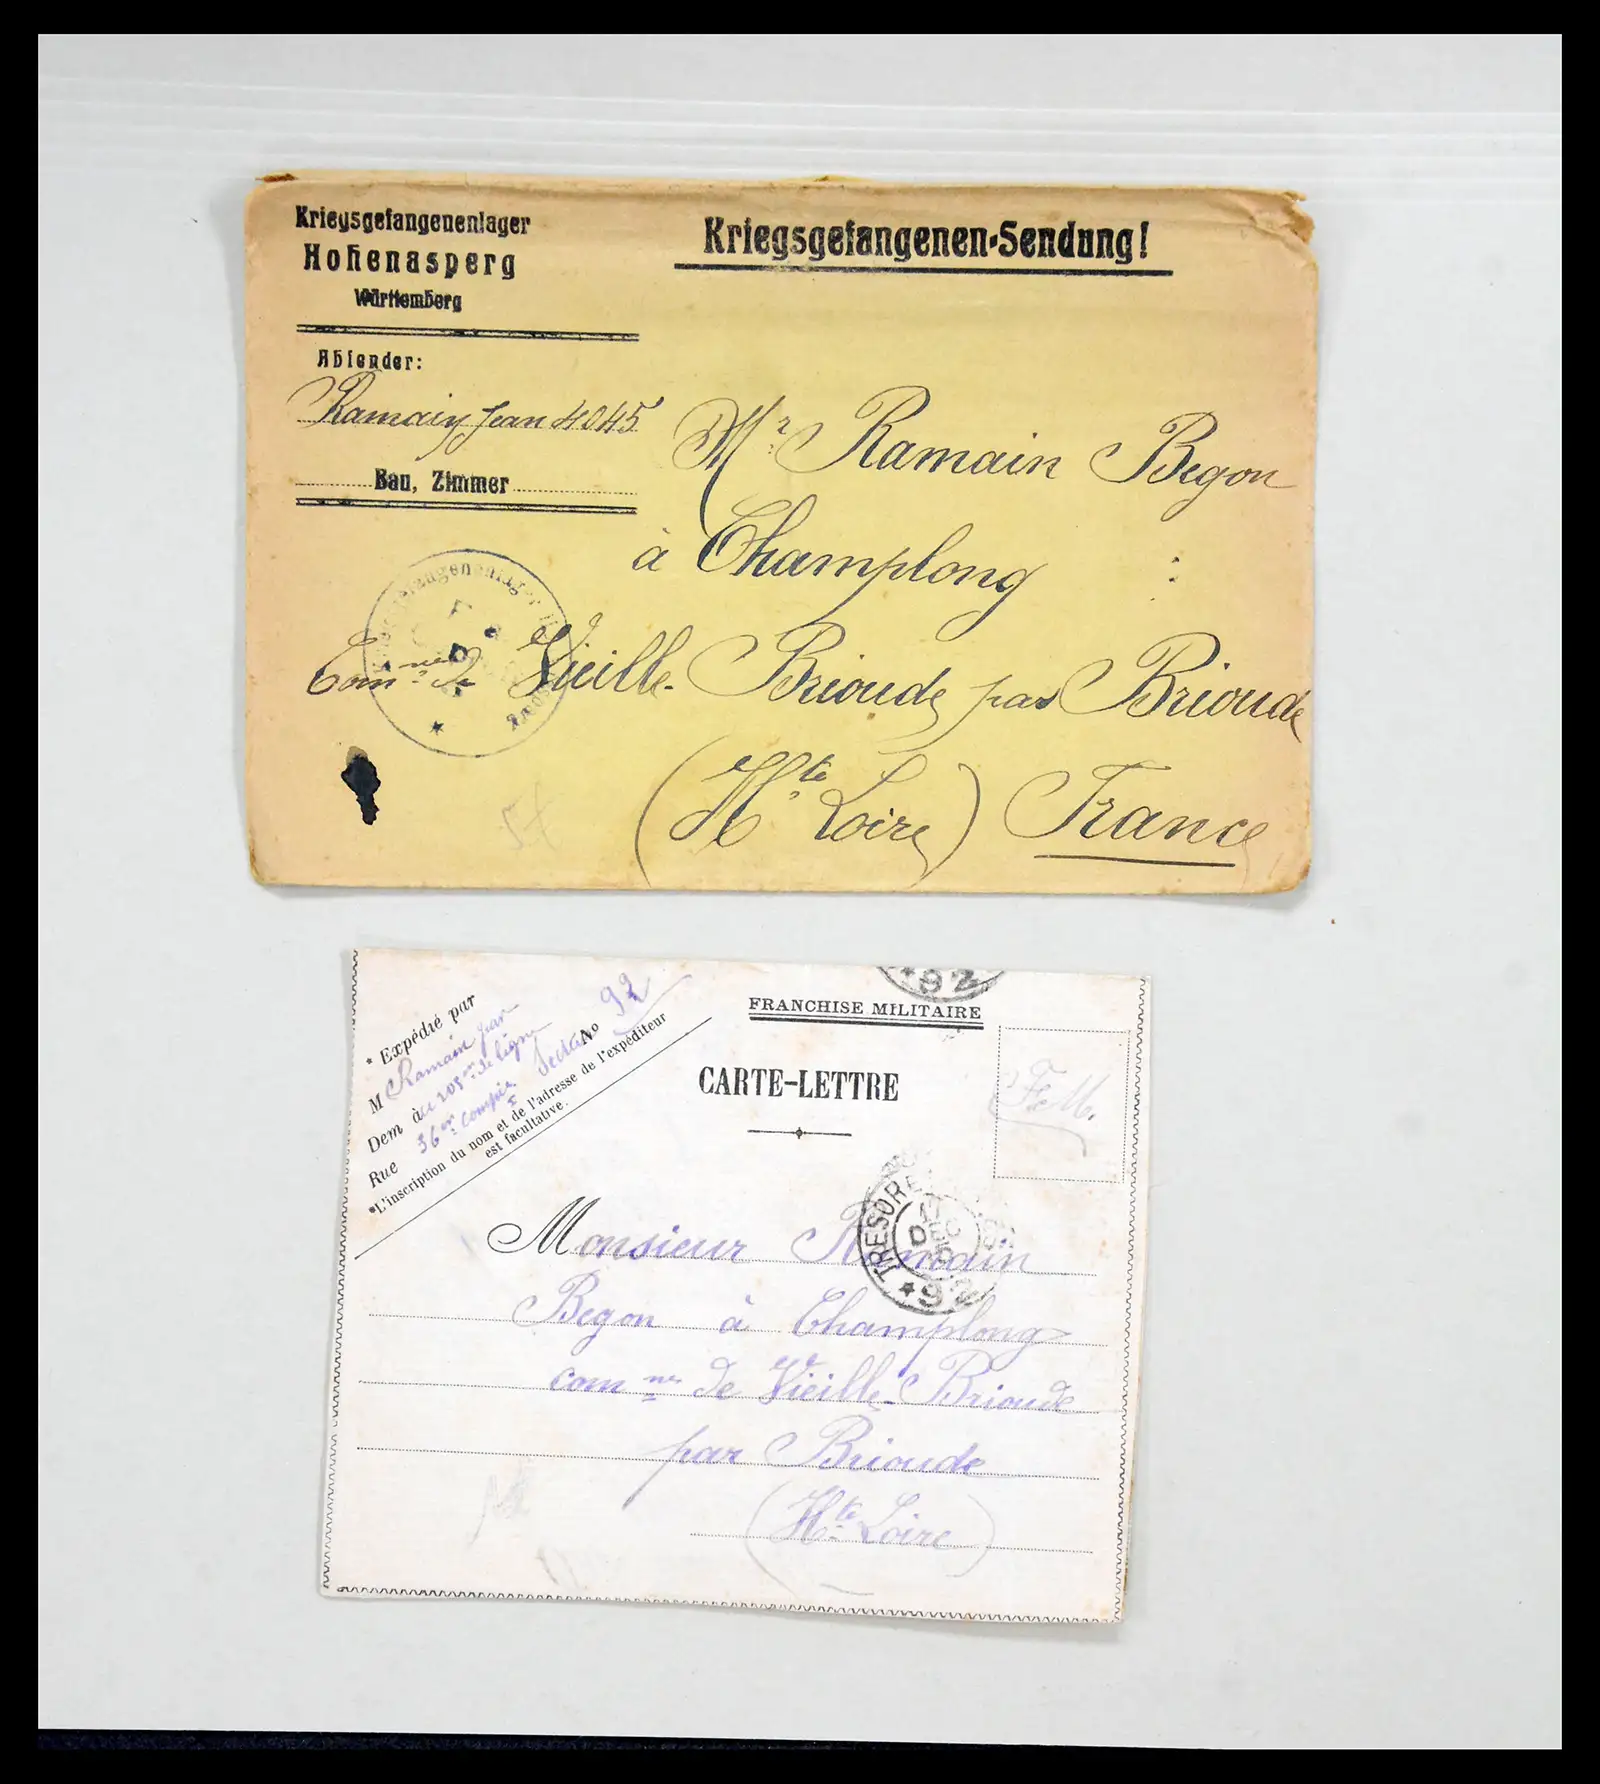 Kriegsgefangenenlager
Hohenasperg
Württemberg
Absender:
Ramain Jean 4045
Bau, Zimmer
Kriegsgefangenen-Sendung!
Mr Ramain Begon
à Champlong
Comne de Vieille-Brioude par Brioude
(Hte Loire) France
92
FRANCHISE MILITAIRE
CARTE-LETTRE
F.M.
* Expédié par
M Ramain
Dem à au de ligne
Rue 36e Compie
No 92
*L'inscription du nom et de l'adresse de l'expéditeur
est facultative.
TRESOR
DEC
* 92
Monsieur Ramain
Begon à Champlong
comne de Vieille-Brioude
par Brioude
(Hte Loire)